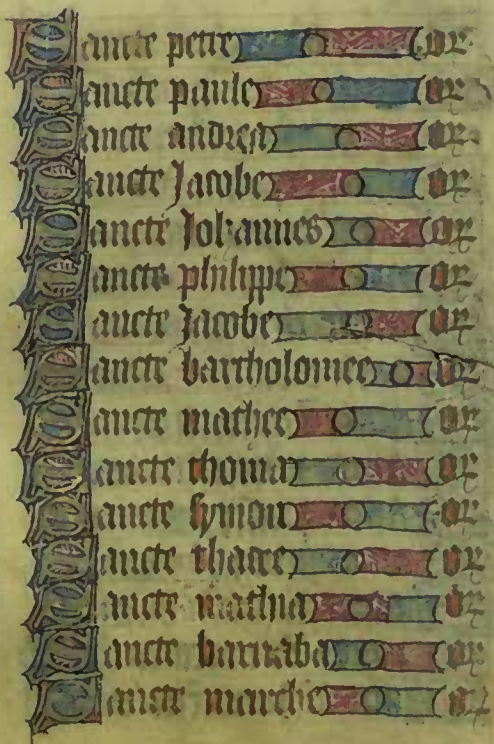 Sancte petre or
Sancte paule or
Sancte andrea or
Sancte Jacobe or
Sancte Johannes or
Sancte philippe or
Sancte Jacobe or
Sancte bartholomee or
Sancte mathee or
Sancte thoma or
Sancte symon or
Sancte thatee or
Sancte mathia or
Sancte barnaba or
Sancte marche or